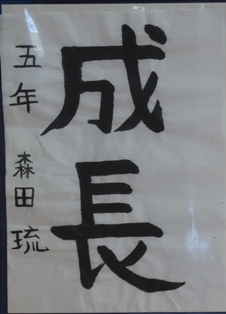 成長
五年 森田琉